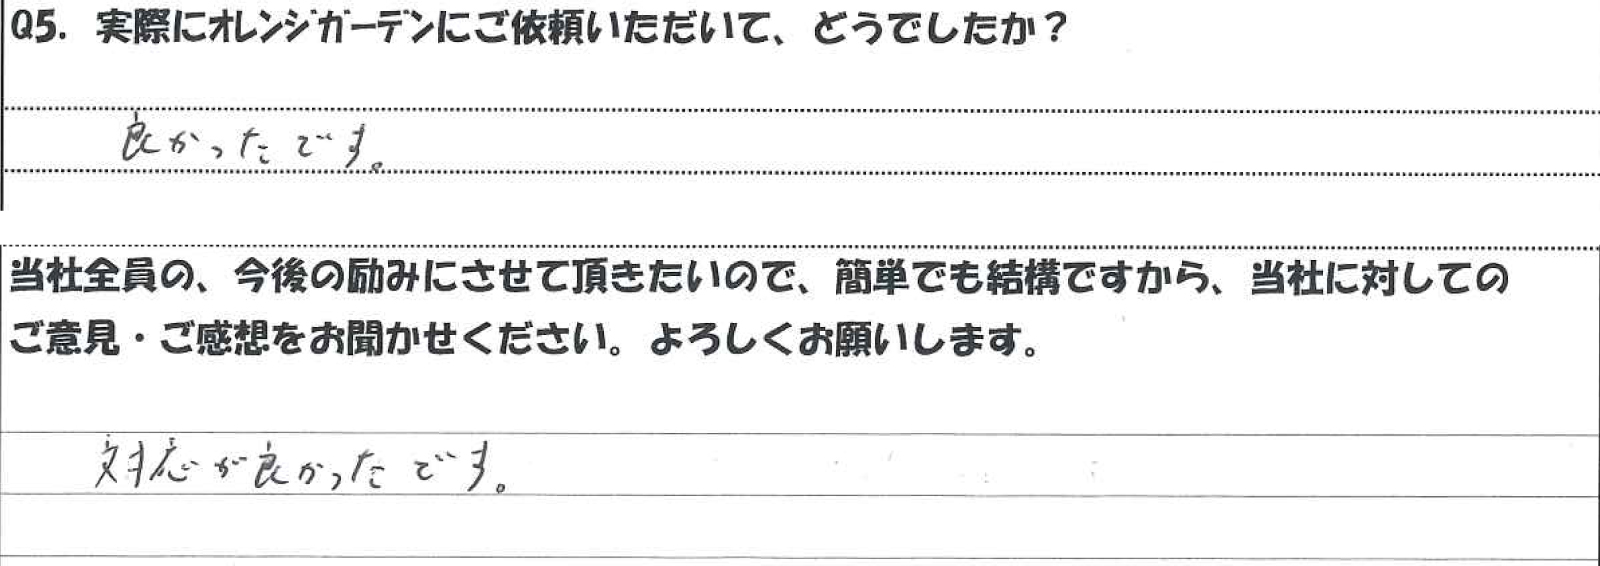 Q5. 実際にオレンジガーデンにご依頼いただいて、どうでしたか？
良かったです。
当社全員の、今後の励みにさせて頂きたいので、簡単でも結構ですから、当社に対しての
ご意見・ご感想をお聞かせください。よろしくお願いします。
対応が良かったです。